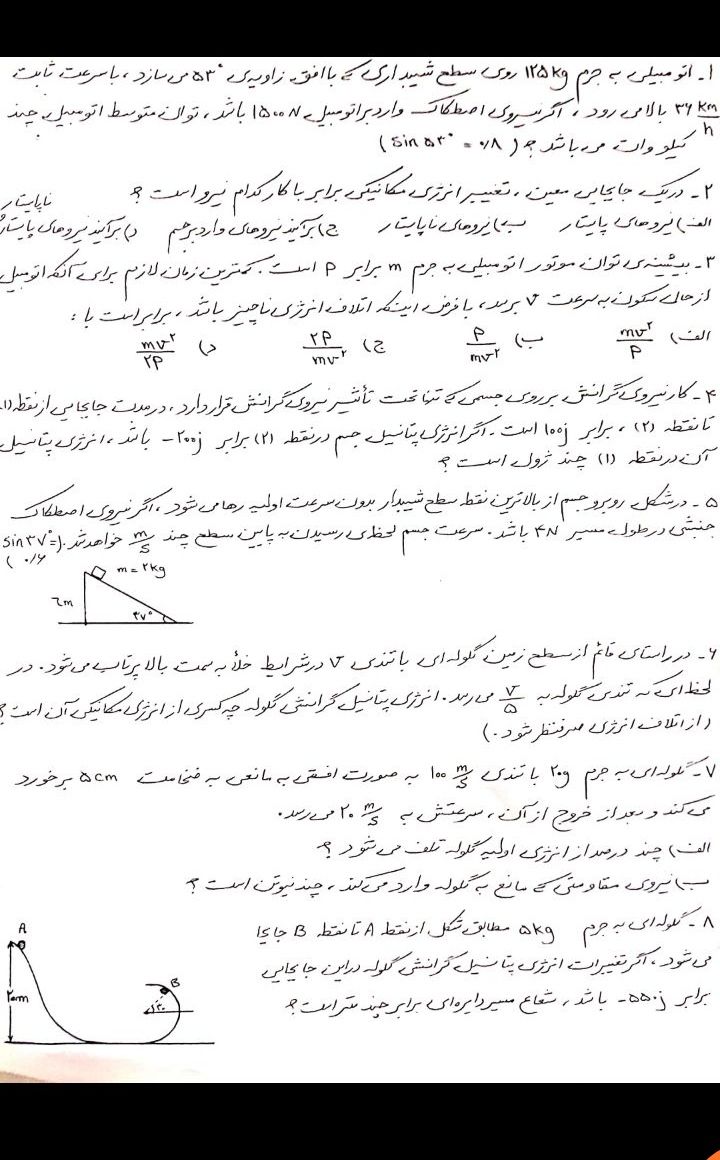 ۱- اتومبیلی به جرم ۱۲۵kg روی سطح شیبداری که با افق زاویه‌ی ۵۳° می سازد، با سرعت ثابت
۳۶ km/h بالا می رود، اگر نیروی اصطکاک وارد بر اتومبیل ۱۵۰۰N باشد، توان متوسط اتومبیل چند
کیلو وات می باشد؟ (sin ۵۳° = ۰/۸)
۲- در یک جابجایی معین، تغییر انرژی مکانیکی برابر با کار کدام نیرو است؟
الف) نیروهای پایستار ب) نیروهای ناپایستار ج) برآیند نیروهای وارد بر جسم د) برآیند نیروهای پایستار و ناپایستار
۳- بیشینه‌ی توان موتور اتومبیلی به جرم m برابر P است. کمترین زمان لازم برای آنکه اتومبیل
از حالت سکون به سرعت v برسد، با فرض اینکه اتلاف انرژی ناچیز باشد، برابر است با:
الف) mv²/P ب) P/mv² ج) ۲P/mv² د) mv²/۲P
۴- کار نیروی گرانش بر روی جسمی که تنها تحت تأثیر نیروی گرانش قرار دارد، در مدت جابجایی از نقطه (۱)
تا نقطه (۲)، برابر ۱۰۰j است. اگر انرژی پتانسیل جسم در نقطه (۲) برابر ۲۰۰j- باشد، انرژی پتانسیل
آن در نقطه (۱) چند ژول است؟
۵- در شکل روبرو جسم از بالاترین نقطه سطح شیبدار بدون سرعت اولیه رها می شود، اگر نیروی اصطکاک
جنبشی در طول مسیر ۴N باشد. سرعت جسم لحظه‌ی رسیدن به پایین سطح چند m/s خواهد شد. (sin ۳۷° = ۰/۶)
m = ۲kg
۶m
۳۷°
۶- در راستای قائم از سطح زمین گلوله ای با تندی v در شرایط خلأ به سمت بالا پرتاب می شود. در
لحظه‌ای که تندی گلوله به v/۵ می رسد. انرژی پتانسیل گرانشی گلوله چه کسری از انرژی مکانیکی آن است؟
(از اتلاف انرژی صرفنظر شود.)
۷- گلوله ای به جرم ۲۰g با تندی ۱۰۰ m/s به صورت افقی به مانعی به ضخامت ۵cm برخورد
می کند و بعد از خروج از آن، سرعتش به ۲۰ m/s می رسد.
الف) چند درصد از انرژی اولیه گلوله تلف می شود؟
ب) نیروی مقاومتی که مانع به گلوله وارد می کند، چند نیوتن است؟
۸- گلوله ای به جرم ۵kg مطابق شکل از نقطه A تا نقطه B جابجا
می شود، اگر تغییرات انرژی پتانسیل گرانشی گلوله در این جابجایی
برابر ۵۵۰j- باشد، شعاع مسیر دایره ای برابر چند متر است؟
A
B
۳۰°